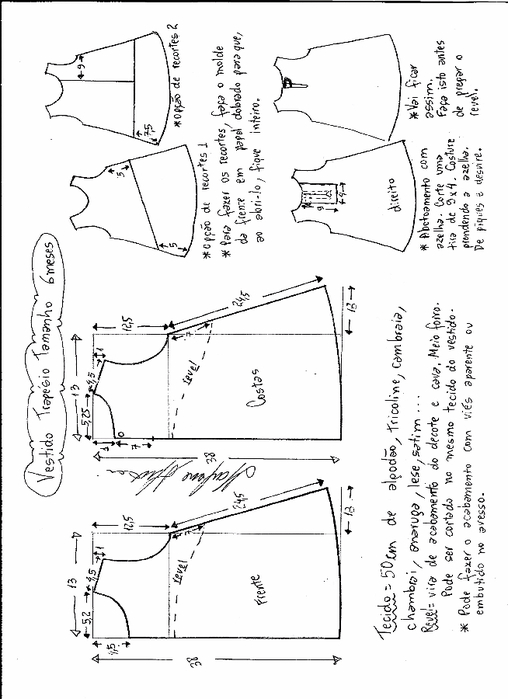 Vestido Trapésio Tamanho 6 meses
13
5,2
4,5
1
12,5
4,5
7
Revel
24,5
Frente
38
13
13
5,25
4,5
1
12,5
1
7
7
Revel
24,5
Costas
38
13
5
5
* opção de recortes 1
9
7,5
* opção de recortes 2
* Para fazer os recortes faça o molde
da frente em papel dobrado para que,
ao abri-lo, fique inteiro.
direito
* Abotoamento com
azelha. Corte uma
tira de 9x4. Costure
prendendo a azelha.
De piques e desvire.
* Vai ficar
assim.
Faça isto antes
de pregar o
revel.
Tecido = 50cm de algodão, tricoline, cambraia,
chambrai, anaruga, lese, satim ...
Revel = vira de acabamento do decote e cava. Meio forro.
Pode ser cortado no mesmo tecido do vestido.
* Pode fazer o acabamento com viés aparente ou
embutido no avesso.